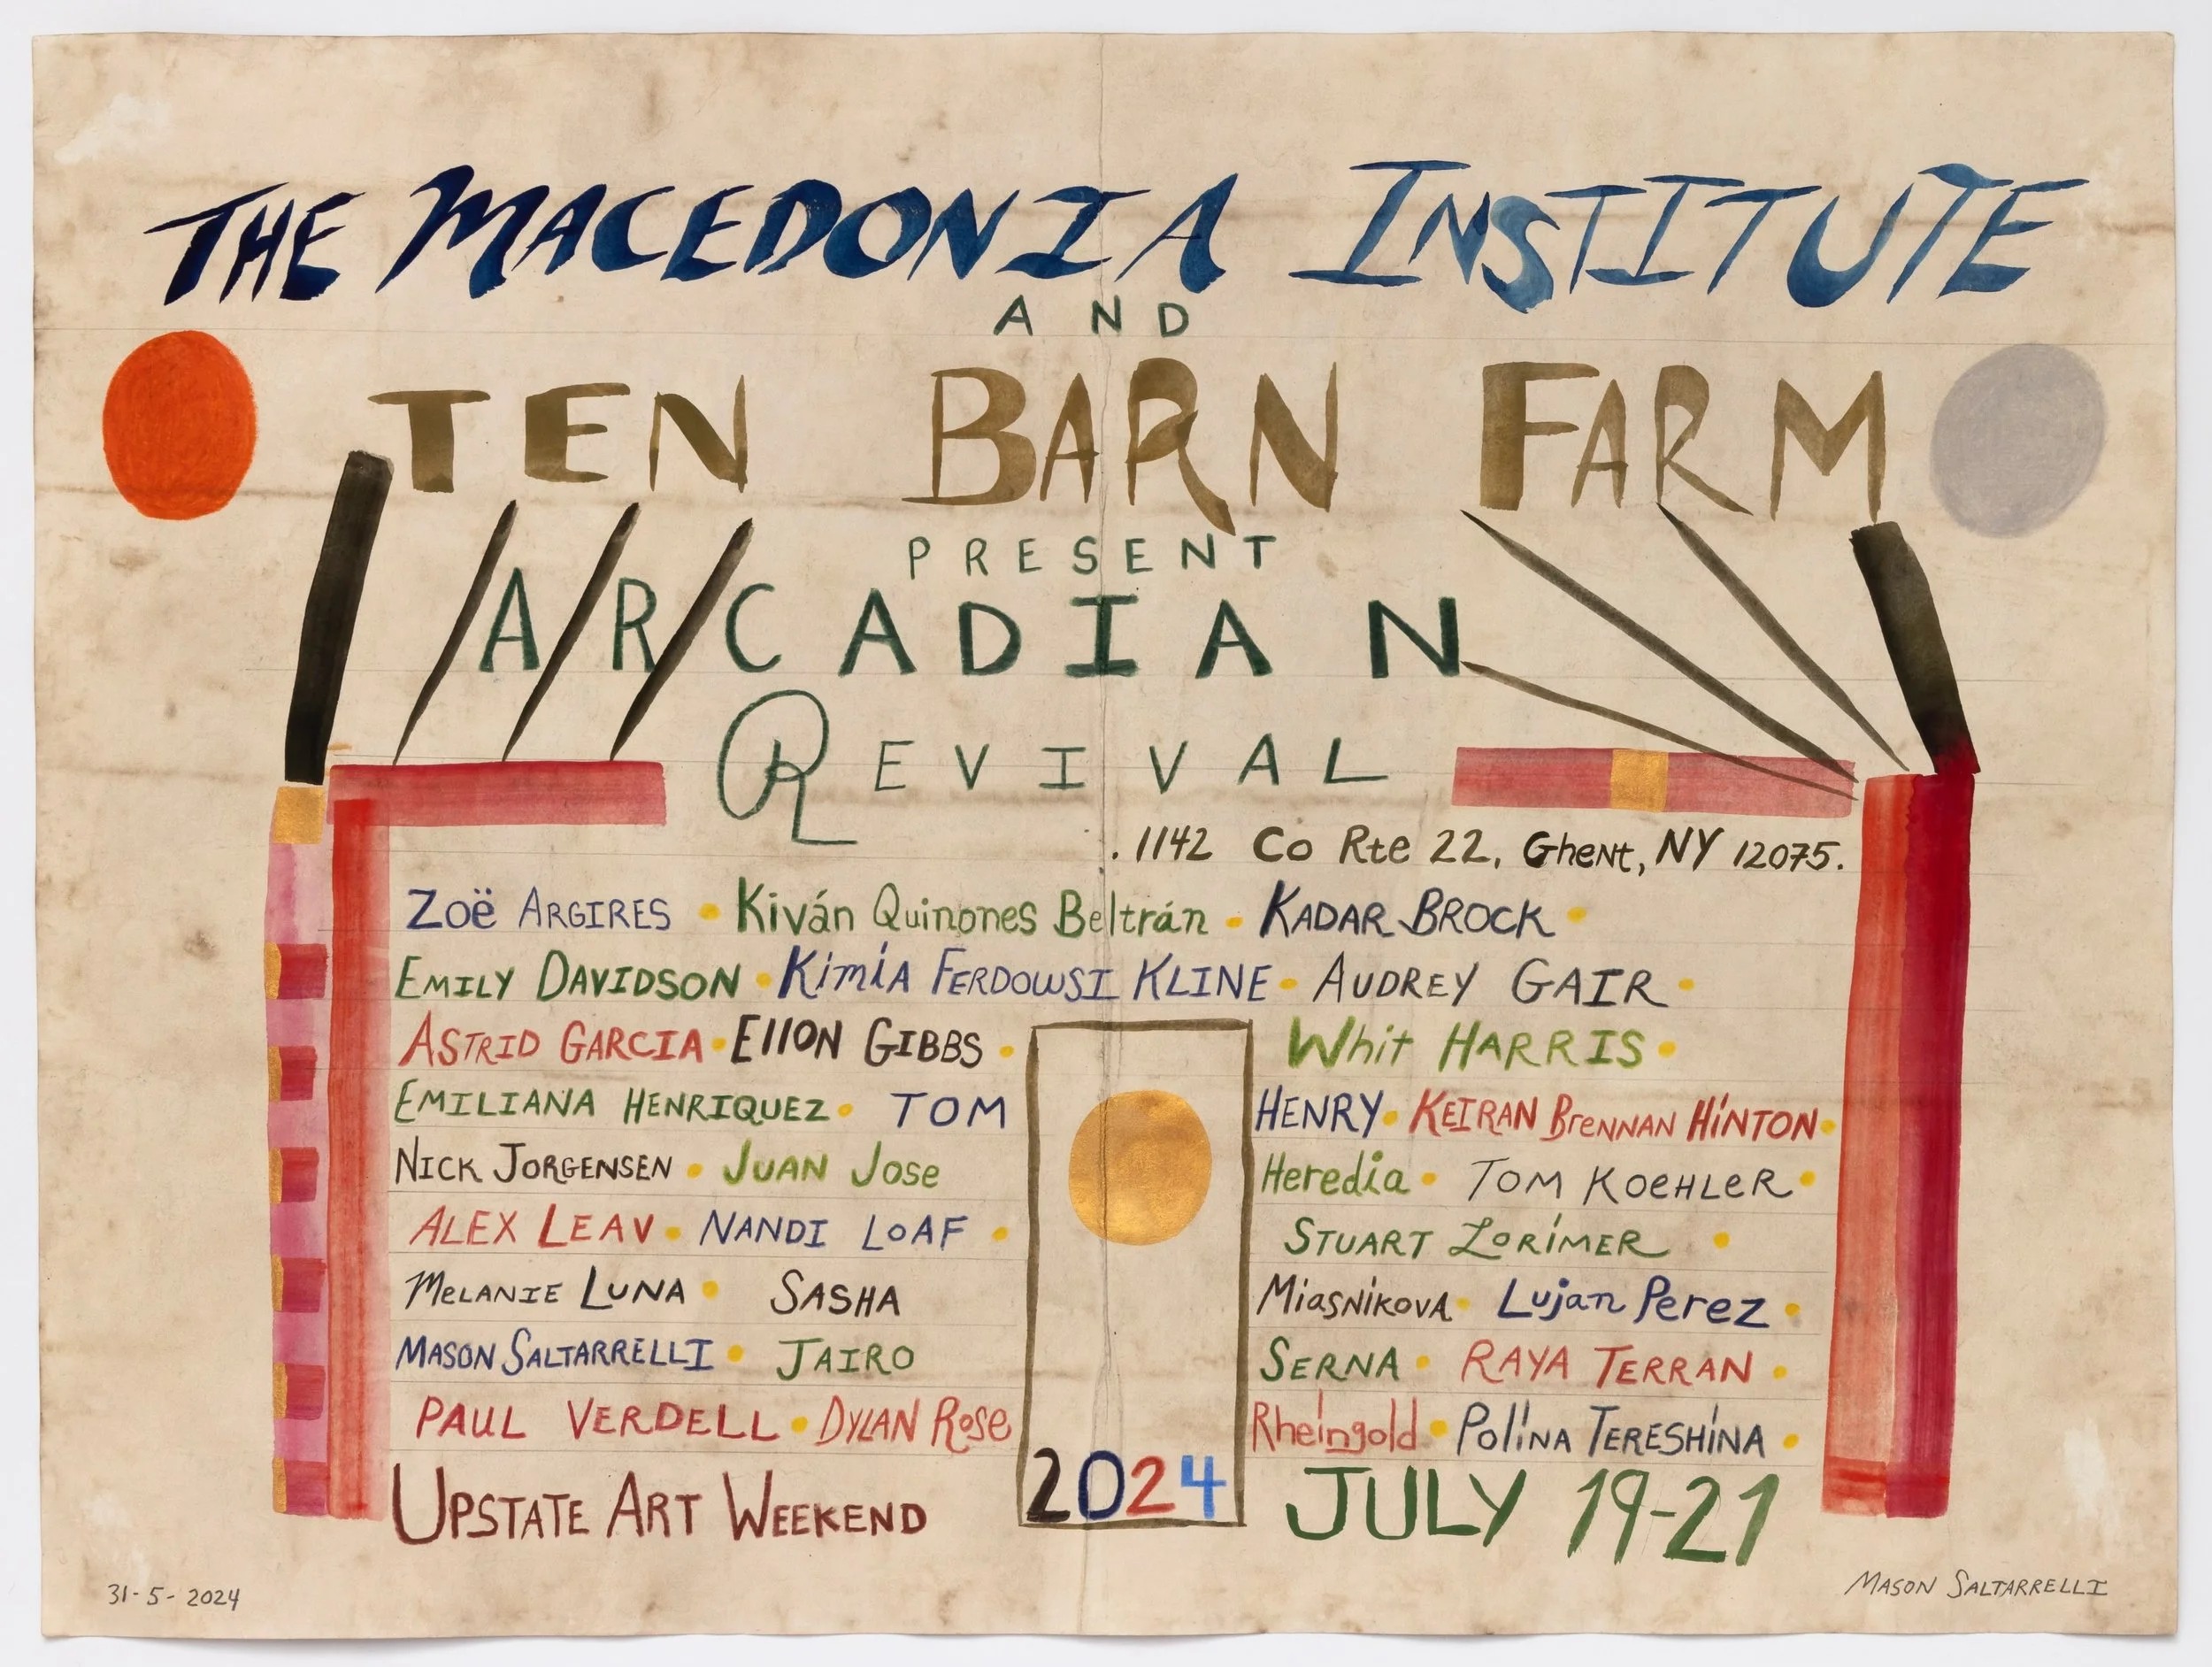 THE MACEDONIA INSTITUTE
AND
TEN BARN FARM
PRESENT
ARCADIAN
REVIVAL
. 1142 Co Rte 22, Ghent, NY 12075.
Zoë ARGIRES • Kiván Quinones Beltrán • KADAR BROCK •
EMILY DAVIDSON • KimiA FERDOWSI KLINE • AUDREY GAIR •
ASTRID GARCIA • EllON GIBBS • Whit HARRIS •
EMILIANA HENRIQUEZ • TOM HENRY • KEIRAN BrenNAN HiNTON •
NICK JORGENSEN • JUAN Jose Heredia • TOM KOeHLeR •
ALEX LEAV • NANDI LOAF • STUART LORiMER •
MeLANIE LUNA • SASHA MiasNikovA • Lujan Perez •
MASON SALTARRELLI • JAIRO SERNA • RAYA TERRAN •
PAUL VERDELL • DYLAN Rose Rheingold • PoliNA TERESHiNA •
UPSTATE ART WEEKEND 2024 JULY 19-21
31-5-2024 MASON SALTARRELLI